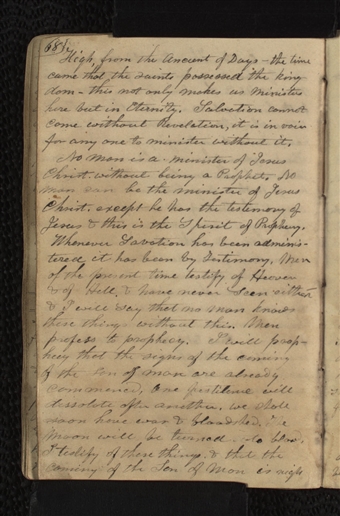 68
High, from the Ancient of Days - the time
came that the saints possessed the king
dom - this not only makes us Ministers
here but in Eternity. Salvation cannot
come without Revelation, it is in vain
for any one to minister without it.
No man is a minister of Jesus
Christ, without being a Prophet. No
man can be the minister of Jesus
Christ, except he has the testimony of
Jesus & this is the Spirit of Prophecy.
Whenever Savation has been adminis-
tered it has been by Testimony. Men
of the present time testify of Heaven
& of Hell, & have never seen either
& I will say that no man knows
these things without this. Men
profess to prophecy. I will prop-
hecy that the signs of the coming
of the Son of man are already
commenced, One pestilence will
dissolate after another, we shall
soon have war & bloodshed. The
Moon will be turned to blood.
I testify of these things, & that the
coming of the Son of Man is nigh,